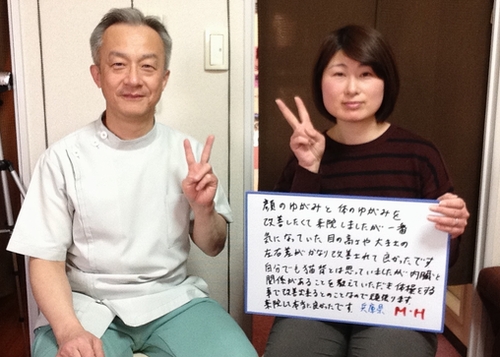 顔のゆがみと体のゆがみを
改善したくて来院しましたが一番
気になっていた目の高さや大きさの
左右差がかなり改善されて良かったです
自分でも猫背とは思っていましたが内臓と
関係があることを教えていただき体操をする
事で改善出来るとのことなので頑張ります
来院して本当に良かったです 兵庫県 M・H